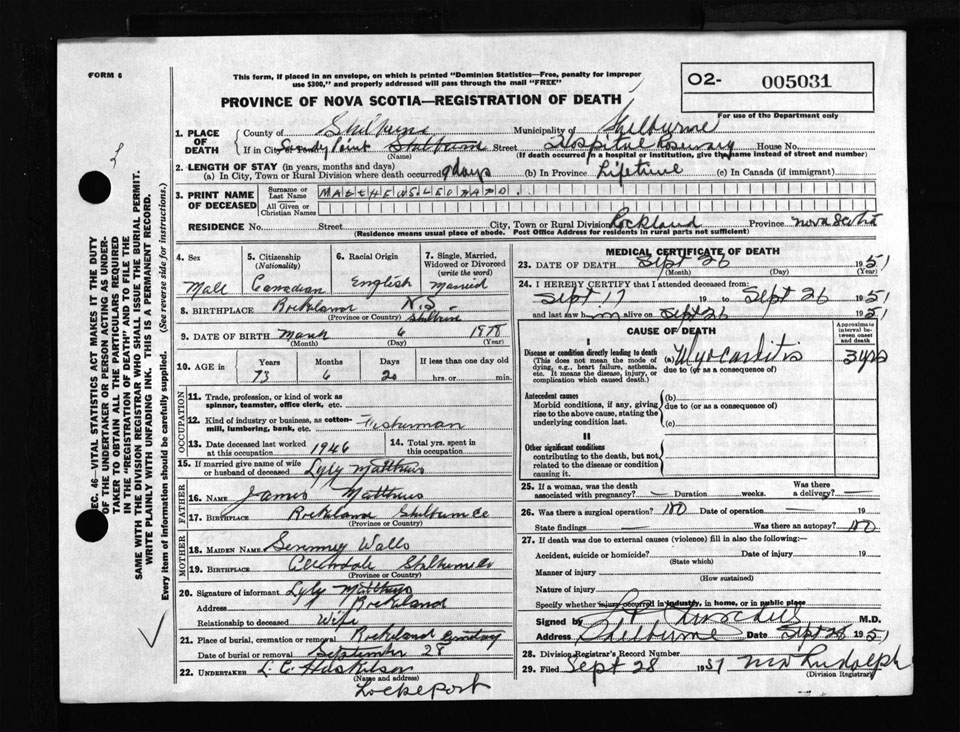 FORM 6
This form, if placed in an envelope, on which is printed "Dominion Statistics—Free, penalty for improper
use $300," and properly addressed will pass through the mail "FREE"
PROVINCE OF NOVA SCOTIA—REGISTRATION OF DEATH
O2- 005031
For use of the Department only
1. PLACE OF DEATH
County of Shelburne Municipality of Shelburne
If in City Sandy Point Shelburne Street Hospital Roseway House No.
(Name) (If death occurred in a hospital or institution, give the name instead of street and number)
2. LENGTH OF STAY (in years, months and days)
(a) In City, Town or Rural Division where death occurred 9 days (b) In Province Lifetime (c) In Canada (if immigrant)
3. PRINT NAME OF DECEASED
Surname or Last Name MATTHEWS LEONARD
All Given or Christian Names
RESIDENCE No. Street City, Town or Rural Division Rockland Province Nova Scotia
(Residence means usual place of abode. Post Office Address for residents in rural parts not sufficient)
4. Sex Male
5. Citizenship (Nationality) Canadian
6. Racial Origin English
7. Single, Married, Widowed or Divorced (write the word) Married
8. BIRTHPLACE Rockland N.S.
(Province or Country)
9. DATE OF BIRTH March 6 1878
(Month) (Day) (Year)
10. AGE in Years Months Days If less than one day old
73 6 20 hrs. or min.
OCCUPATION
11. Trade, profession, or kind of work as
spinner, teamster, office clerk, etc.
12. Kind of industry or business, as cotton-
mill, lumbering, bank, etc. Fisherman
13. Date deceased last worked
at this occupation 1946
14. Total yrs. spent in
this occupation
15. If married give name of wife
or husband of deceased Lyly Matthews
FATHER
16. NAME James Matthews
17. BIRTHPLACE Rockland Shelburne Co
(Province or Country)
MOTHER
18. MAIDEN NAME Walls
19. BIRTHPLACE Shelburne Co
(Province or Country)
20. Signature of informant Lyly Matthews
Address Rockland
Relationship to deceased Wife
21. Place of burial, cremation or removal Rockland Cemetery
Date of burial or removal September 28
22. UNDERTAKER L. C. Huskilson
(Name and address)
Lockeport
MEDICAL CERTIFICATE OF DEATH
23. DATE OF DEATH Sept 26 1951
(Month) (Day) (Year)
24. I HEREBY CERTIFY that I attended deceased from:
Sept 17 19 to Sept 26 1951
and last saw him alive on Sept 26 1951
CAUSE OF DEATH
Approximate interval between onset and death
I
Disease or condition directly leading to death
(This does not mean the mode of
dying, e.g., heart failure, asthenia,
etc. It means the disease, injury, or
complication which caused death.)
(a) Myocarditis 3 yrs
due to (or as a consequence of)
Antecedent causes
Morbid conditions, if any, giving
rise to the above cause, stating the
underlying condition last.
(b)
due to (or as a consequence of)
(c)
II
Other significant conditions
contributing to the death, but not
related to the disease or condition
causing it.
25. If a woman, was the death
associated with pregnancy? — Duration weeks. Was there a delivery? —
26. Was there a surgical operation? No Date of operation — 19
State findings Was there an autopsy? No
27. If death was due to external causes (violence) fill in also the following:—
Accident, suicide or homicide? Date of injury 19
(State which)
Manner of injury
(How sustained)
Nature of injury
Specify whether injury occurred in industry, in home, or in public place
Signed by M.D.
Address Shelburne Date Sept 28 1951
28. Division Registrar's Record Number
29. Filed Sept 28 1951 Rudolph
(Division Registrar)
SEC. 46—VITAL STATISTICS ACT MAKES IT THE DUTY
OF THE UNDERTAKER OR PERSON ACTING AS UNDER-
TAKER TO OBTAIN ALL THE PARTICULARS REQUIRED
IN THE "REGISTRATION OF DEATH" AND TO FILE THE
SAME WITH THE DIVISION REGISTRAR WHO SHALL ISSUE THE BURIAL PERMIT.
WRITE PLAINLY WITH UNFADING INK. THIS IS A PERMANENT RECORD.
Every item of information should be carefully supplied. (See reverse side for instructions.)